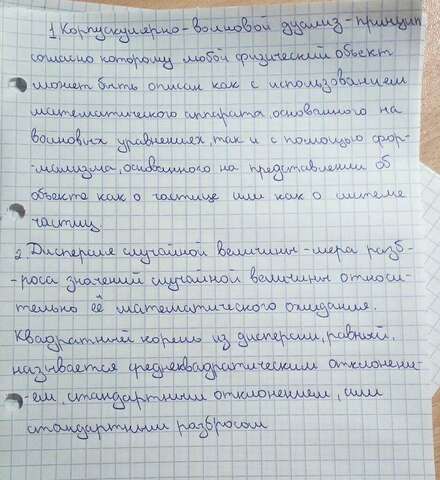 1. Корпускулярно-волновой дуализ-принцип
согласно которому любой физический объект
может быть описан как с использованием
математического аппарата, основанного на
волновых уравнениях, так и с помощью фор-
-мализма, основанного на представлении об
объекте как о частице или как о системе
частиц
2. Дисперсия случайной величины-мера разб-
-роса значений случайной величины относи-
тельно её математического ожидания.
Квадратный корень из дисперсии, равный,
называется среднеквадратическим отклонени-
-ем, стандартным отклонением, или
стандартным разбросом